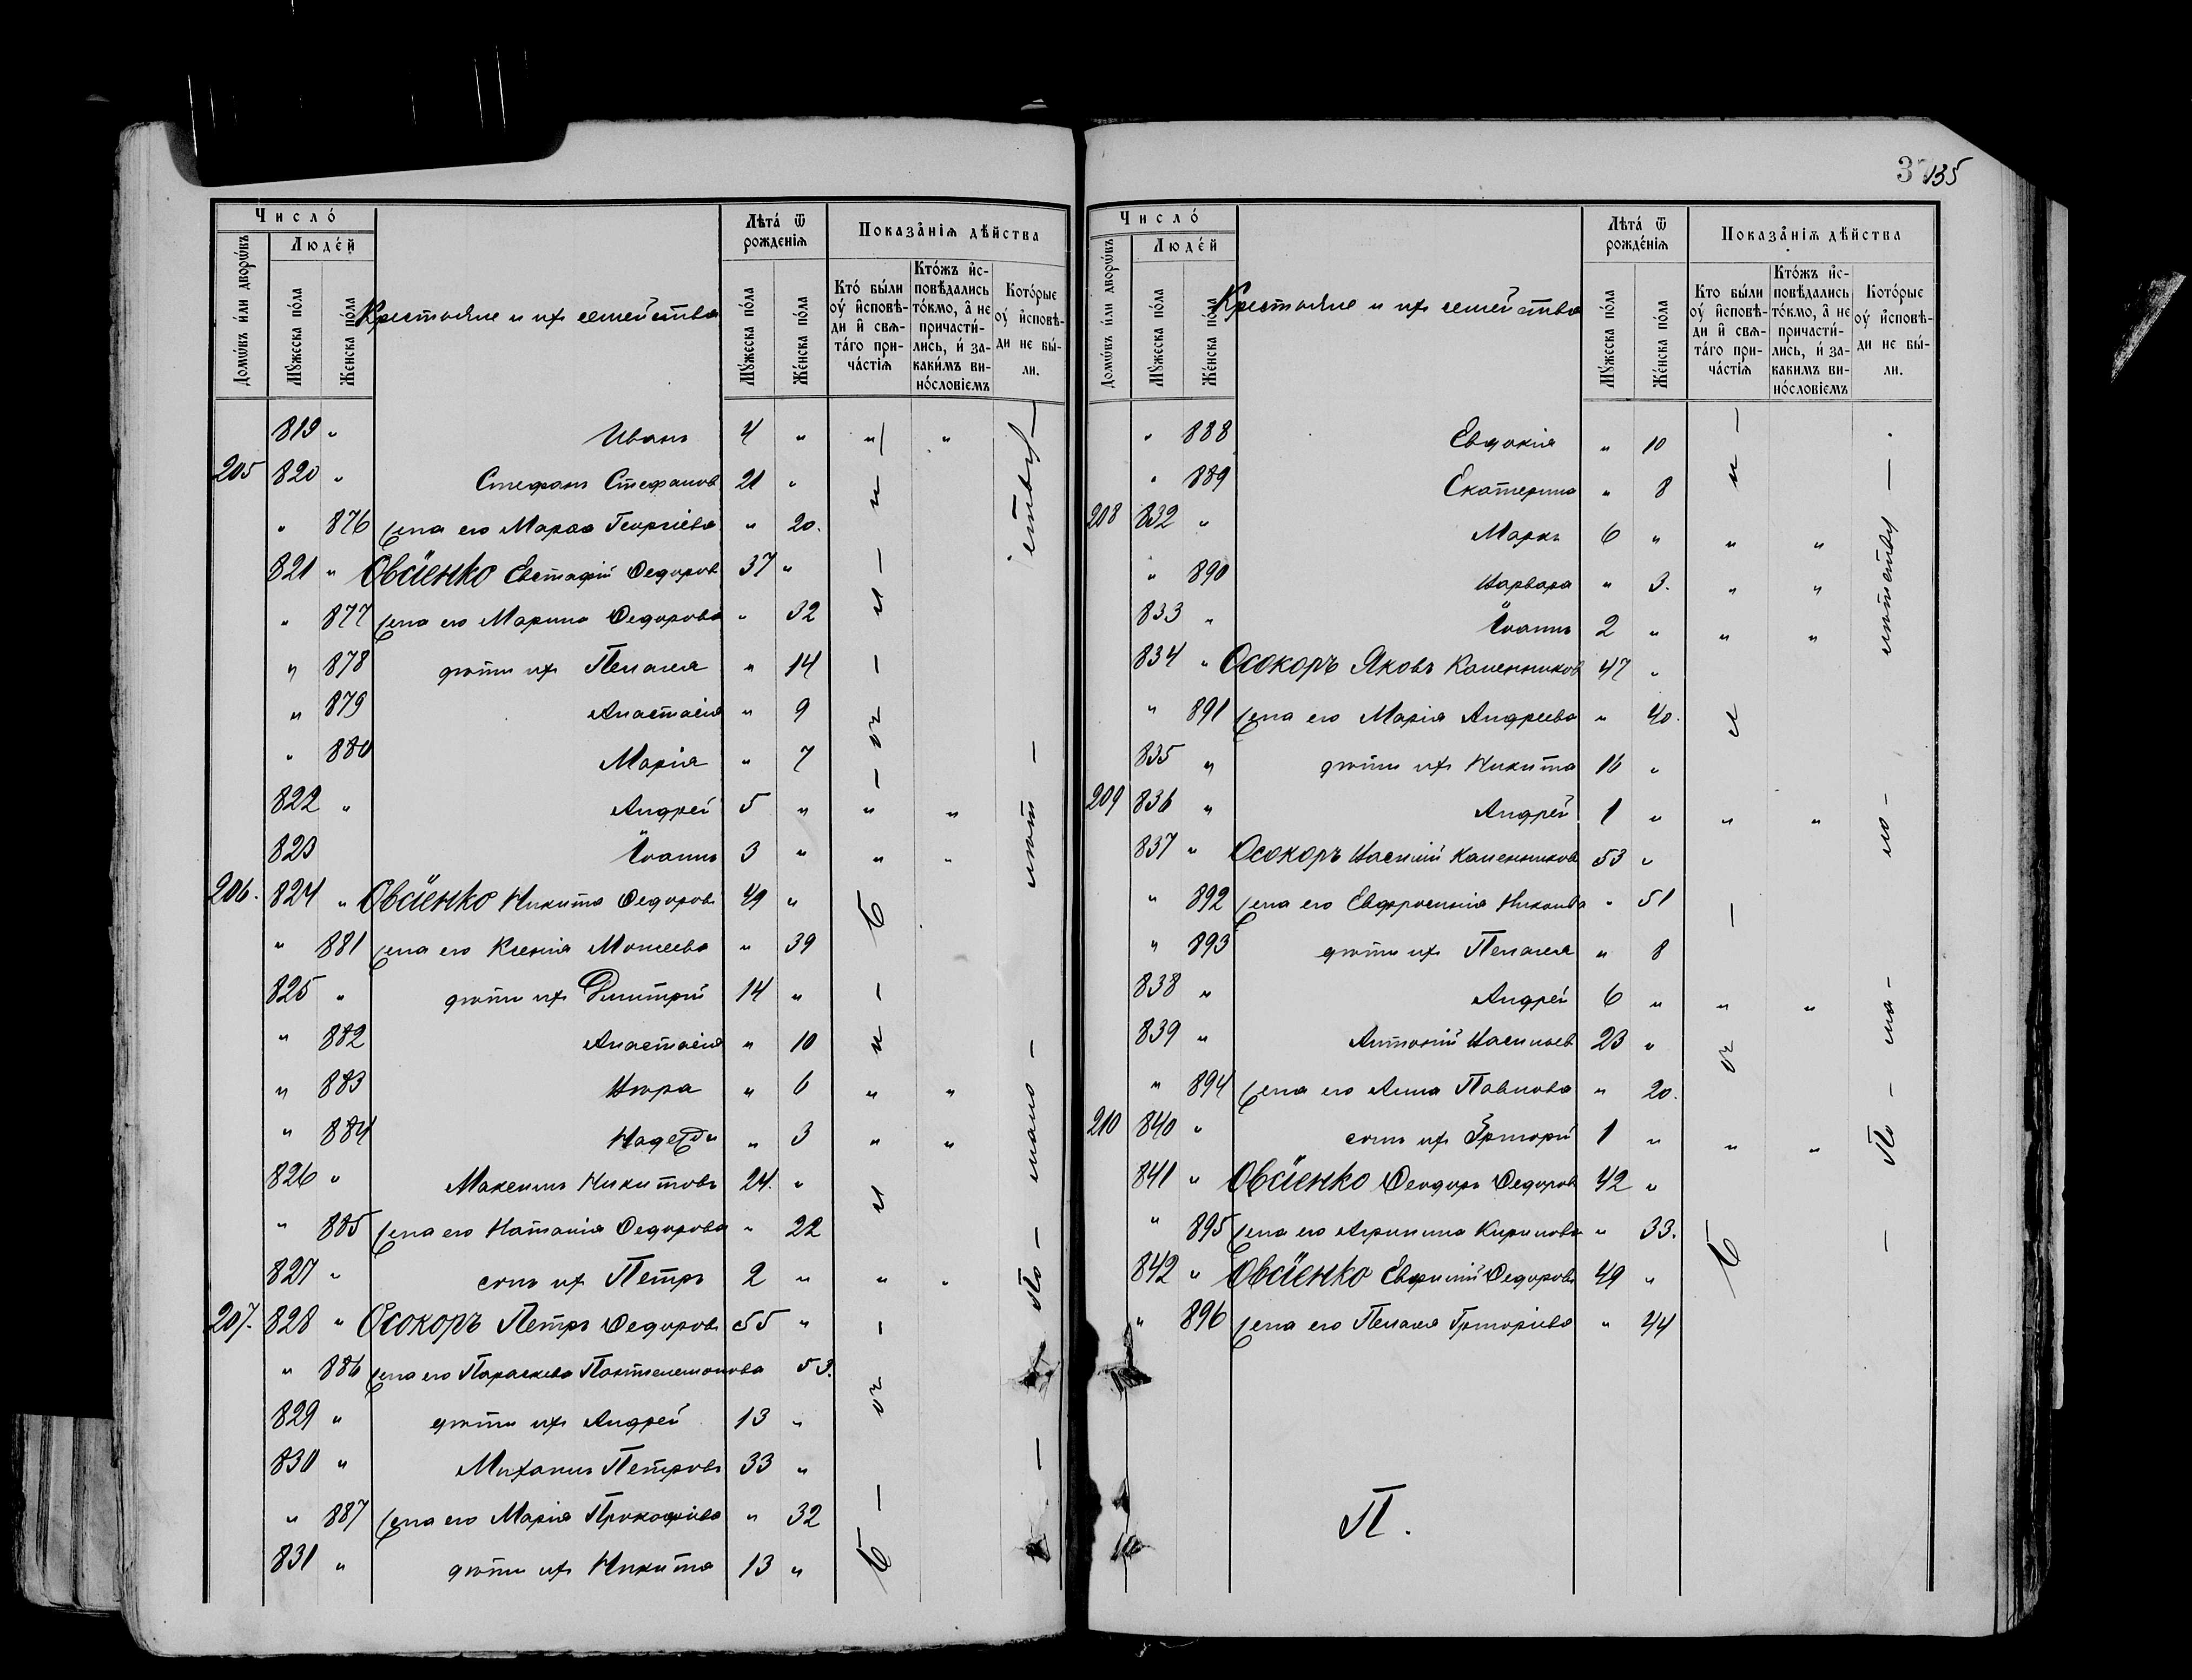 Число́
Людє́й
Домѡ́въ и́ли дворѡ́въ
Мꙋ́жеска по́ла
Же́нска по́ла
Крестьяне и ихъ семейства
Лѣта́ ѿ рожде́нїѧ
Мꙋ́жеска по́ла
Же́нска по́ла
Показа́нїѧ дѣ́йства
Кто́ бы́ли ᲂу҆ и҆сповѣ́ди и҆ свѧта́го прича́стїѧ
Кто́жъ и҆сповѣ́дались то́кмо, а҆ не причасти́лись, и҆ за каки́мъ вино́словїемъ
Кото́рые ᲂу҆ и҆сповѣ́ди не бы́ли.
819 " Иванъ 4 " " "
205 820 " Стефанъ Стефановъ 21 "
" 876 Жена его Марѳа Георгіева " 20.
821 " Овсіенко Евстафій Ѳедоровъ 37 "
" 877 Жена его Марина Ѳедорова " 32
" 878 дѣти ихъ Пелагея " 14
" 879 Анастасія " 9
" 880 Марія " 7
822 " Андрей 5 " " "
823 Іоаннъ 3 " " "
206. 824 " Овсіенко Никита Ѳедоровъ 49 "
" 881 Жена его Ксенія Моисеева " 39
825 " дѣти ихъ Димитрій 14 "
" 882 Анастасія " 10
" 883 Вѣра " 6 " "
" 884 Надежда " 3 " "
826 " Максимъ Никитовъ 24. "
" 885 Жена его Наталія Ѳедорова " 22
827 " сынъ ихъ Петръ 2 " " "
207. 828 " Осокоръ Петръ Ѳедоровъ 55 "
" 886 Жена его Параскева Пантелеимонова 53.
829 " дѣти ихъ Андрей 13 "
830 " Михаилъ Петровъ 33 "
" 887 Жена его Марія Прокофіева " 32
831 " дѣти ихъ Никита 13 "
По – мало – лѣт – ству –
37
135
Число́
Людє́й
Домѡ́въ и́ли дворѡ́въ
Мꙋ́жеска по́ла
Же́нска по́ла
Крестьяне и ихъ семейства
Лѣта́ ѿ рожде́нїѧ
Мꙋ́жеска по́ла
Же́нска по́ла
Показа́нїѧ дѣ́йства
Кто бы́ли ᲂу҆ и҆сповѣ́ди и҆ свѧта́го прича́стїѧ
Кто́жъ и҆сповѣ́дались то́кмо, а҆ не причасти́лись, и҆ за каки́мъ вино́словїемъ
Кото́рые ᲂу҆ и҆сповѣ́ди не бы́ли.
" 888 Евдокія " 10
" 889 Екатерина " 8
208 832 " Маркъ 6 " " "
" 890 Варвара " 3. " "
833 " Іоаннъ 2 " " "
834 " Осокоръ Яковъ Калинниковъ 47 "
" 891 Жена его Марія Андреева " 40.
835 " дѣти ихъ Никита 16 "
209 836 " Андрей 1 " " "
837 " Осокоръ Василій Калинниковъ 53 "
" 892 Жена его Евфросинія " 51
" 893 дѣти ихъ Пелагея " 8
838 " Андрей 6 " " "
839 " Антоній Васильевъ 23 "
" 894 Жена его Анна Павлова " 20.
210 840 " сынъ ихъ Григорій 1 " " "
841 " Овсіенко Ѳеодоръ Ѳедоровъ 42 "
" 895 Жена его Агрипина Кирилова " 33.
842 " Овсіенко Евфимій Ѳедоровъ 49 "
" 896 Жена его Пелагея Григоріева " 44
По – ма – ло – лѣтству –
П.